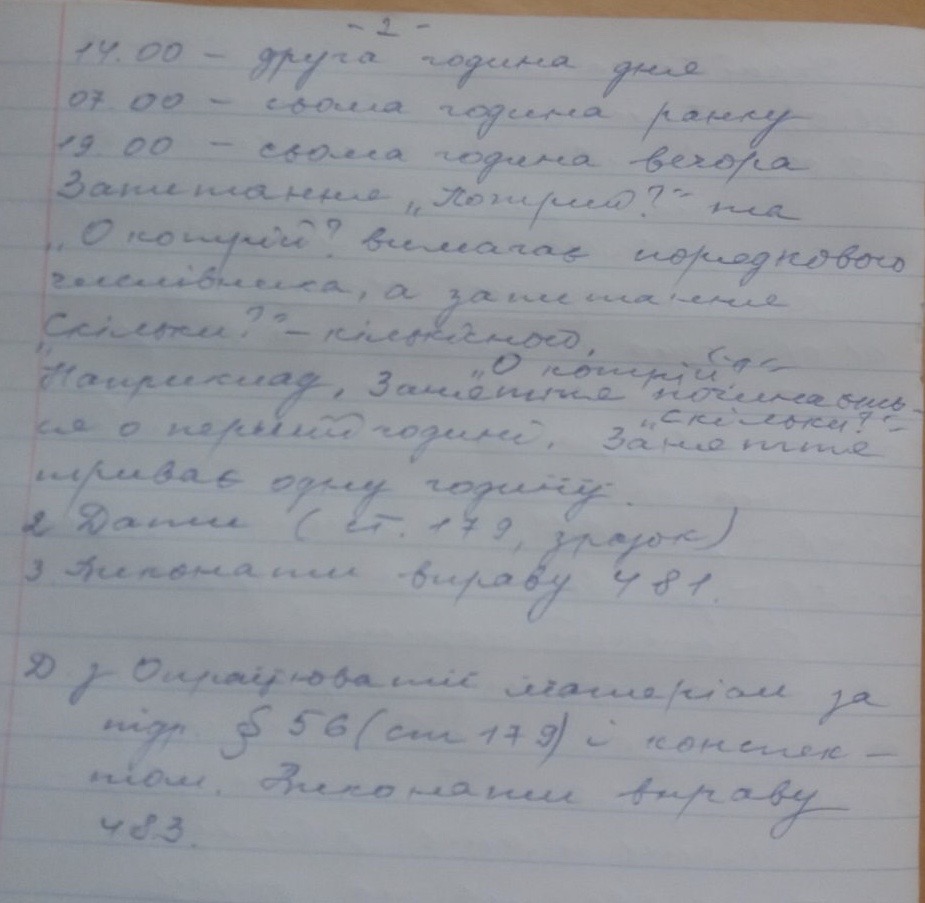 - 2 -
14.00 – друга година дня
07.00 – сьома година ранку
19.00 – сьома година вечора
Запитання „Котрий?“ та
„О котрій? вимагає порядкового
числівника, а запитання
„Скільки?“ – кількісного.
„О котрій?“
Наприклад, Заняття починаєть-
„Скільки?“
ся о першій годині. Заняття
триває одну годину.
2 Дати (ст. 179, зразок)
3 Виконати вправу 481.
Д з Опрацювати матеріал за
підр § 56 (ст 179) і конспек-
том. Виконати вправу
483.